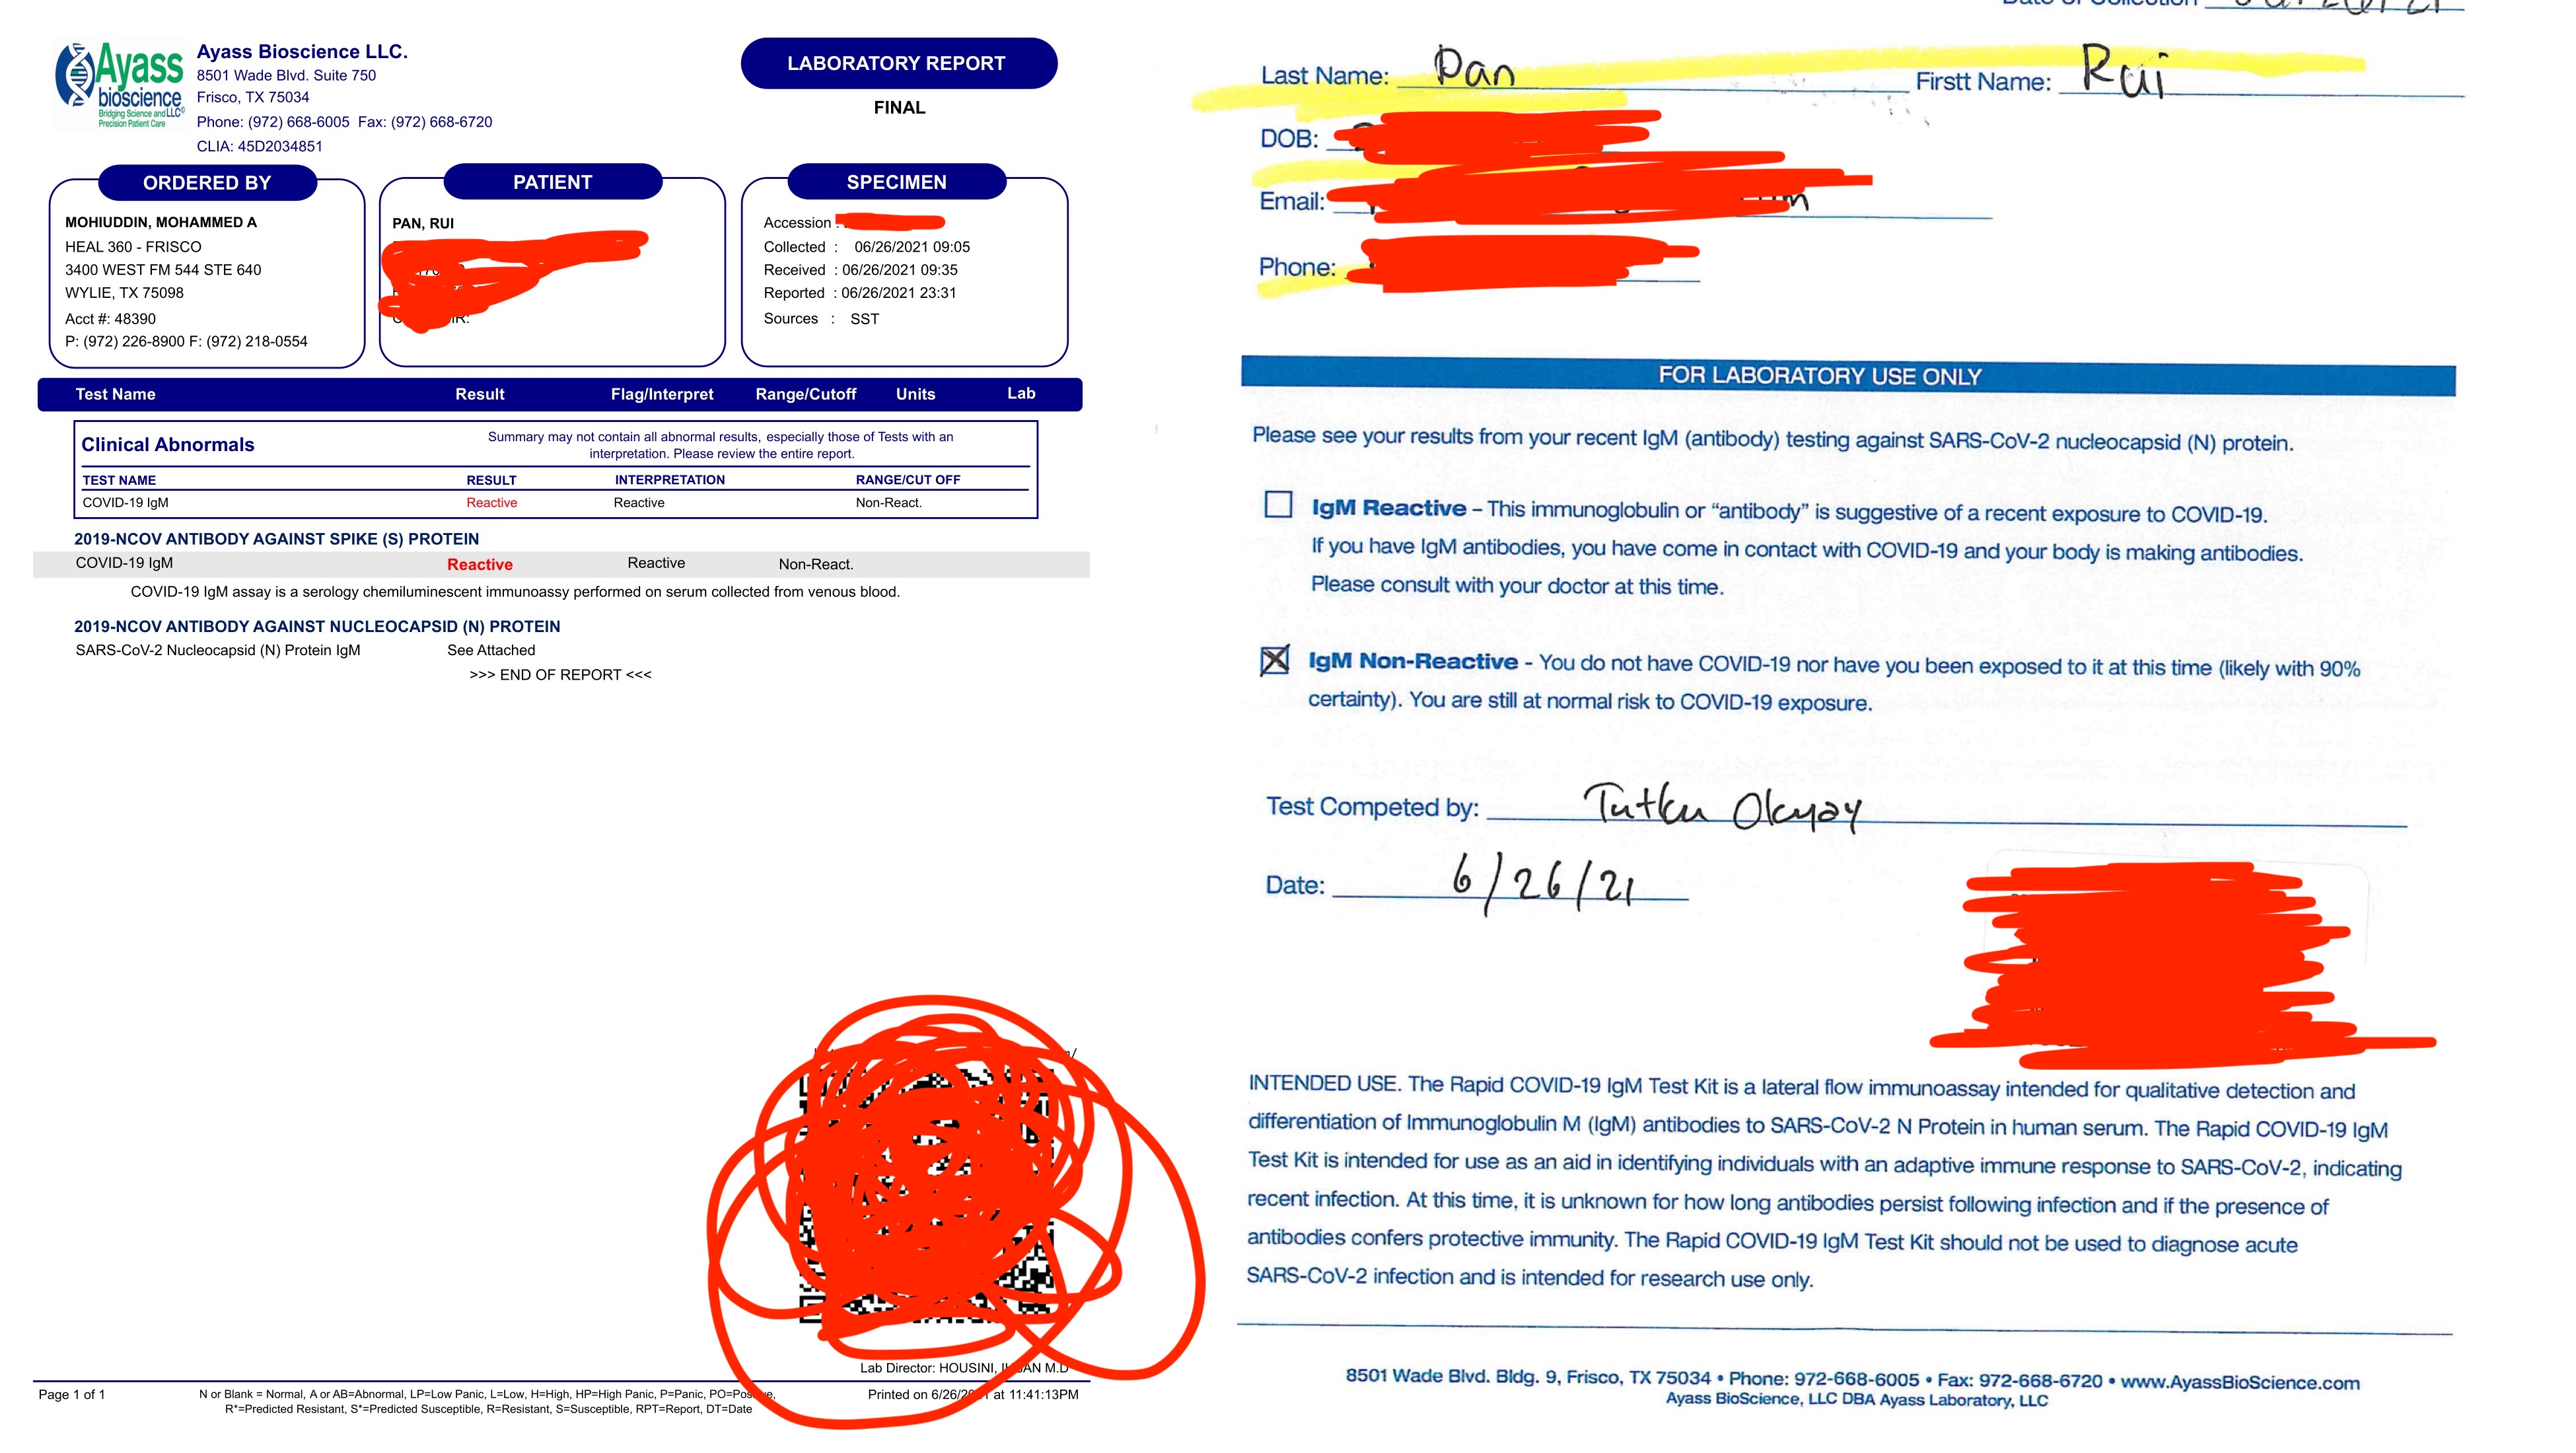 Ayass
bioscience LLC©
Bridging Science and
Precision Patient Care
Ayass Bioscience LLC.
8501 Wade Blvd. Suite 750
Frisco, TX 75034
Phone: (972) 668-6005 Fax: (972) 668-6720
CLIA: 45D2034851
LABORATORY REPORT
FINAL
ORDERED BY
MOHIUDDIN, MOHAMMED A
HEAL 360 - FRISCO
3400 WEST FM 544 STE 640
WYLIE, TX 75098
Acct #: 48390
P: (972) 226-8900 F: (972) 218-0554
PATIENT
PAN, RUI
SPECIMEN
Accession :
Collected : 06/26/2021 09:05
Received : 06/26/2021 09:35
Reported : 06/26/2021 23:31
Sources : SST
Test Name Result Flag/Interpret Range/Cutoff Units Lab
Clinical Abnormals
Summary may not contain all abnormal results, especially those of Tests with an
interpretation. Please review the entire report.
TEST NAME RESULT INTERPRETATION RANGE/CUT OFF
COVID-19 IgM Reactive Reactive Non-React.
2019-NCOV ANTIBODY AGAINST SPIKE (S) PROTEIN
COVID-19 IgM Reactive Reactive Non-React.
COVID-19 IgM assay is a serology chemiluminescent immunoassy performed on serum collected from venous blood.
2019-NCOV ANTIBODY AGAINST NUCLEOCAPSID (N) PROTEIN
SARS-CoV-2 Nucleocapsid (N) Protein IgM See Attached
>>> END OF REPORT <<<
Lab Director: HOUSINI, M.D
Page 1 of 1
N or Blank = Normal, A or AB=Abnormal, LP=Low Panic, L=Low, H=High, HP=High Panic, P=Panic, PO=Positive,
R*=Predicted Resistant, S*=Predicted Susceptible, R=Resistant, S=Susceptible, RPT=Report, DT=Date
Printed on 6/26/2021 at 11:41:13PM
Date of Collection
Last Name: Pan Firstt Name: Rui
DOB:
Email:
Phone:
FOR LABORATORY USE ONLY
Please see your results from your recent IgM (antibody) testing against SARS-CoV-2 nucleocapsid (N) protein.
IgM Reactive – This immunoglobulin or “antibody” is suggestive of a recent exposure to COVID-19.
If you have IgM antibodies, you have come in contact with COVID-19 and your body is making antibodies.
Please consult with your doctor at this time.
IgM Non-Reactive - You do not have COVID-19 nor have you been exposed to it at this time (likely with 90%
certainty). You are still at normal risk to COVID-19 exposure.
Test Competed by: Tutku Okyay
Date: 6/26/21
INTENDED USE. The Rapid COVID-19 IgM Test Kit is a lateral flow immunoassay intended for qualitative detection and
differentiation of Immunoglobulin M (IgM) antibodies to SARS-CoV-2 N Protein in human serum. The Rapid COVID-19 IgM
Test Kit is intended for use as an aid in identifying individuals with an adaptive immune response to SARS-CoV-2, indicating
recent infection. At this time, it is unknown for how long antibodies persist following infection and if the presence of
antibodies confers protective immunity. The Rapid COVID-19 IgM Test Kit should not be used to diagnose acute
SARS-CoV-2 infection and is intended for research use only.
8501 Wade Blvd. Bldg. 9, Frisco, TX 75034 • Phone: 972-668-6005 • Fax: 972-668-6720 • www.AyassBioScience.com
Ayass BioScience, LLC DBA Ayass Laboratory, LLC